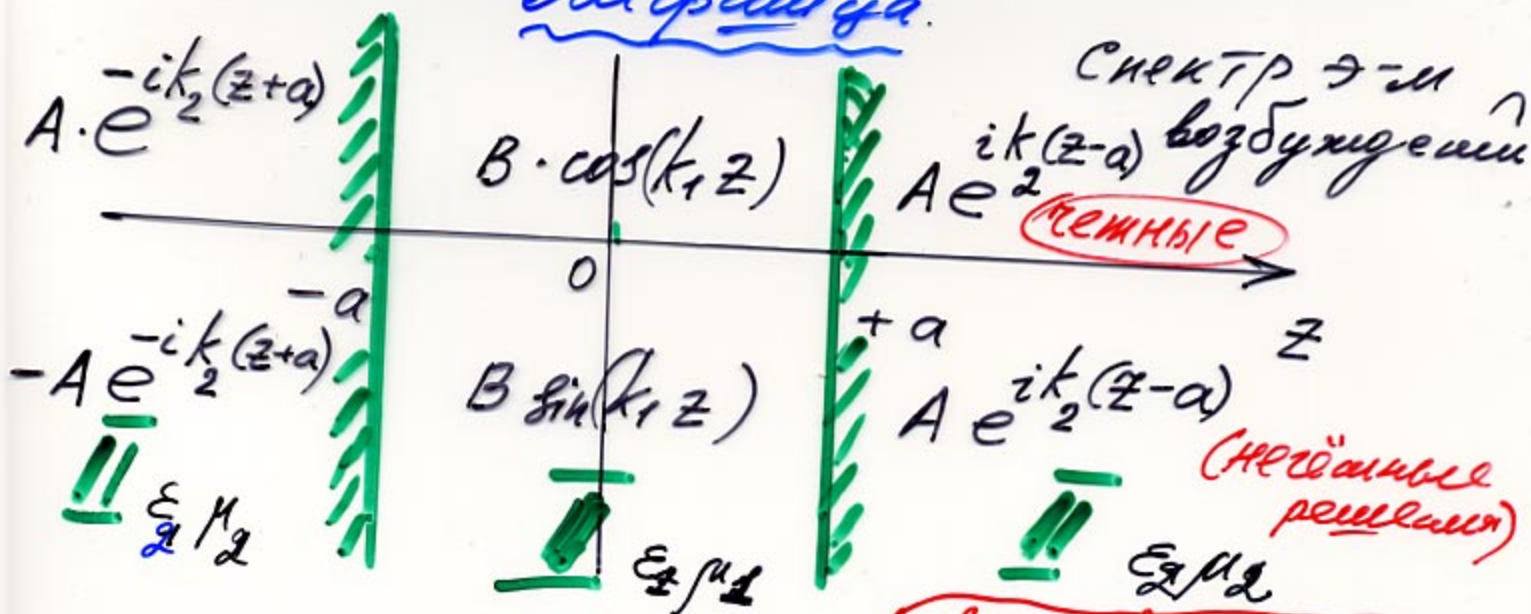 Спектр э-м
возбуждений
A·e^{-ik₂(z+a)}
B·cos(k₁z)
A e^{ik₂(z-a)}
четные
-a
0
+a
z
-A e^{-ik₂(z+a)}
B sin(k₁z)
A e^{ik₂(z-a)}
(нечётные
решения)
II
ε₂ μ₂
I
ε₁ μ₁
II
ε₂ μ₂